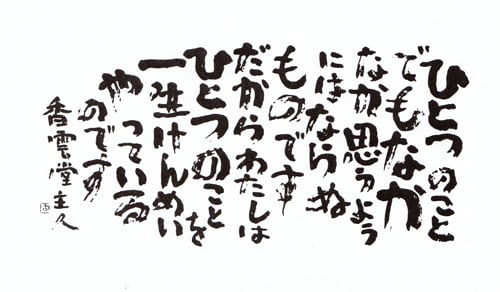 ひとつのこと
でもなか
なか思うよう
にはならぬ
ものです
だからわたしは
ひとつのことを
一生けんめい
やっている
のです
香雲堂主人